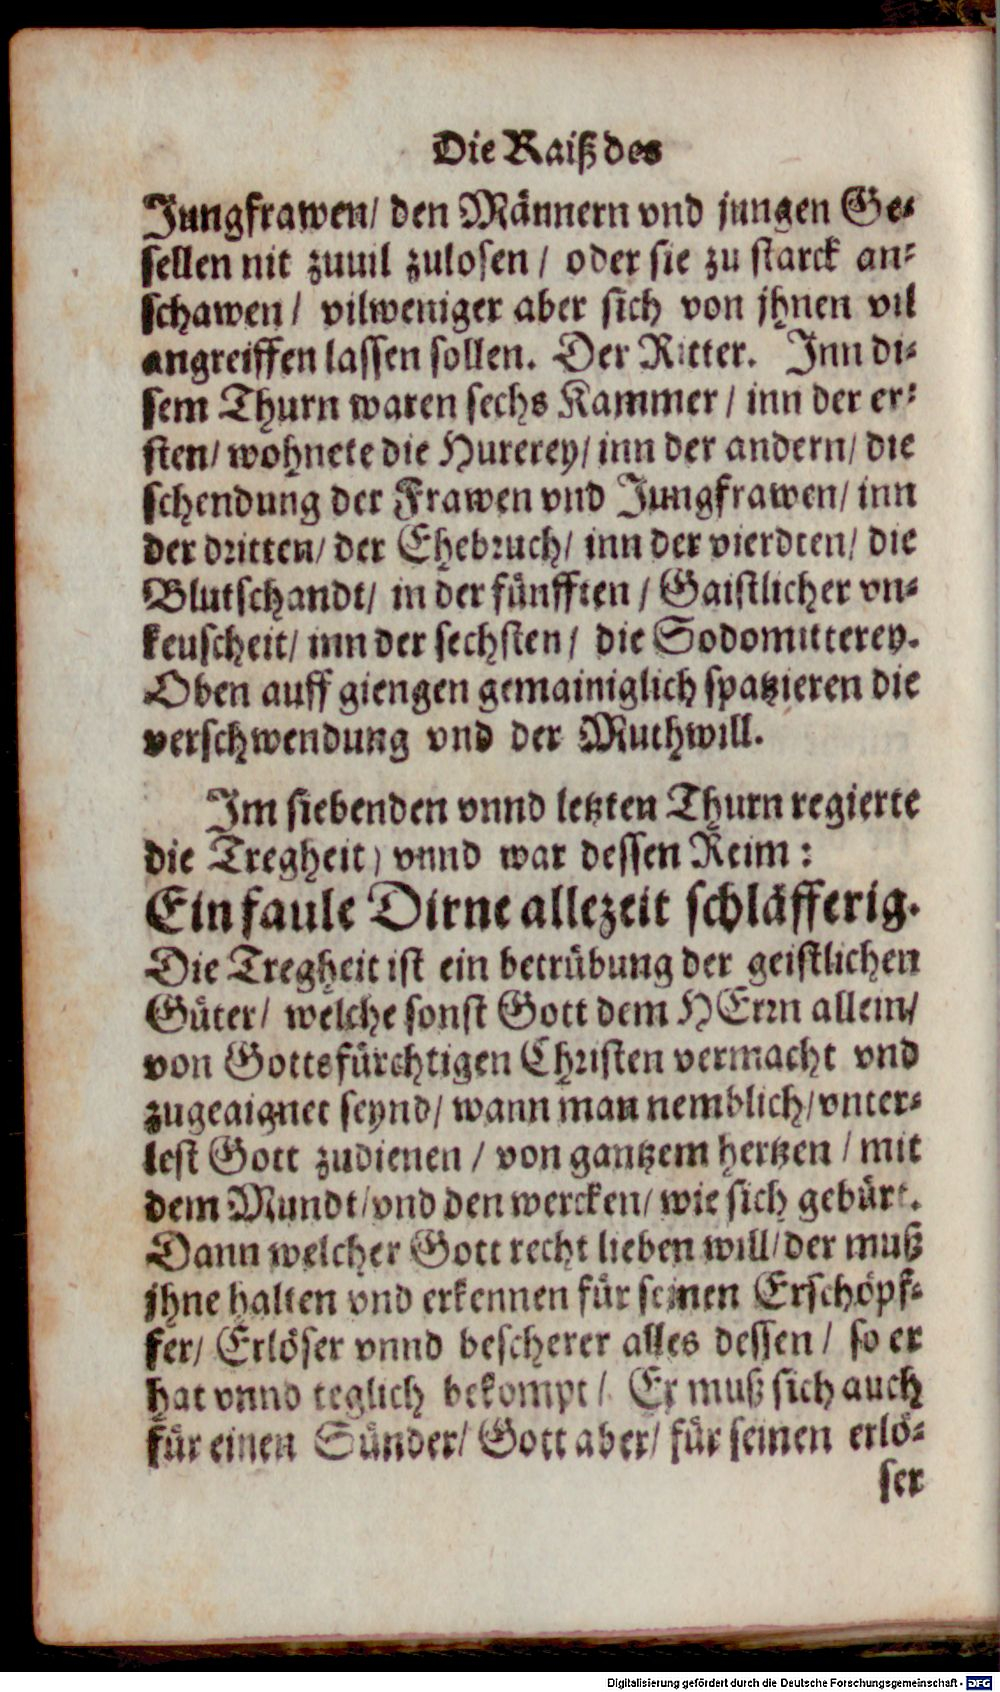 Die Raiß des
Jungfrawen/ den Männern vnd jungen Ge-
sellen nit zuuil zulosen / oder sie zu starck an-
schawen / vilweniger aber sich von jhnen vil
angreiffen lassen sollen. Der Ritter. Inn di-
sem Thurn waren sechs Kammer / inn der er-
sten/ wohnete die Hurerey/ inn der andern/ die
schendung der Frawen vnd Jungfrawen/ inn
der dritten/ der Ehebruch/ inn der vierdten/ die
Blutschandt/ in der fünfften / Gaistlicher vn-
keuscheit/ inn der sechsten / die Sodomitterey.
Oben auff giengen gemainiglich spatzieren die
verschwendung vnd der Muthwill.
Im siebenden vnnd letzten Thurn regierte
die Tregheit) vnnd war dessen Reim:
Ein faule Dirne allezeit schläfferig.
Die Tregheit ist ein betrübung der geistlichen
Güter/ welche sonst Gott dem HErrn allein/
von Gottsfürchtigen Christen vermacht vnd
zugeaignet seynd/ wann man nemblich/ vnter-
lest Gott zudienen / von gantzem hertzen / mit
dem Mundt/ vnd den wercken/ wie sich gebürt.
Dann welcher Gott recht lieben will/ der muß
jhne halten vnd erkennen für seinen Erschöpf-
fer/ Erlöser vnnd bescherer alles dessen / so er
hat vnnd teglich bekompt / Er muß sich auch
für einen Sünder/ Gott aber/ für seinen erlö-
ser
Digitalisierung gefördert durch die Deutsche Forschungsgemeinschaft - DFG